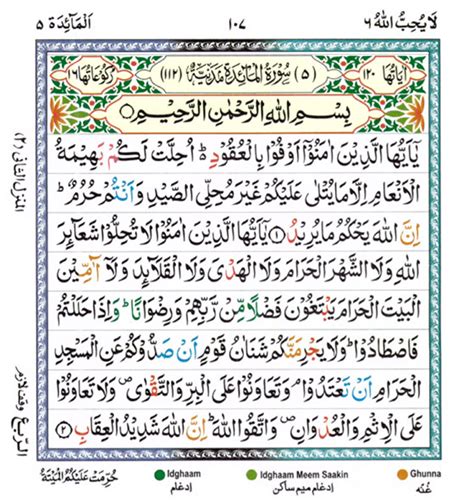 لَا يُحِبُّ اللهُ ٦ ١٠٧ اَلْمَآئِدَة ٥
اٰيَاتُهَا ١٢٠ (٥) سُوْرَةُ الْمَآئِدَةِ مَدَنِيَّةٌ (١١٢) رُكُوْعَاتُهَا ١٦
بِسْمِ اللهِ الرَّحْمٰنِ الرَّحِيْمِ
يٰۤاَيُّهَا الَّذِيْنَ اٰمَنُوْۤا اَوْفُوْا بِالْعُقُوْدِ ؕ اُحِلَّتْ لَكُمْ بَهِيْمَةُ
الْاَنْعَامِ اِلَّا مَا يُتْلٰى عَلَيْكُمْ غَيْرَ مُحِلِّى الصَّيْدِ وَاَنْتُمْ حُرُمٌ ؕ
اِنَّ اللهَ يَحْكُمُ مَا يُرِيْدُ ۝١ يٰۤاَيُّهَا الَّذِيْنَ اٰمَنُوْا لَا تُحِلُّوْا شَعَآئِرَ
اللهِ وَلَا الشَّهْرَ الْحَرَامَ وَلَا الْهَدْىَ وَلَا الْقَلَآئِدَ وَلَاۤ آٰمِّيْنَ
الْبَيْتَ الْحَرَامَ يَبْتَغُوْنَ فَضْلًا مِّنْ رَّبِّهِمْ وَرِضْوَانًا ؕ وَاِذَا حَلَلْتُمْ
فَاصْطَادُوْا ؕ وَلَا يَجْرِمَنَّكُمْ شَنَاٰنُ قَوْمٍ اَنْ صَدُّوْكُمْ عَنِ الْمَسْجِدِ
الْحَرَامِ اَنْ تَعْتَدُوْا ۘ وَتَعَاوَنُوْا عَلَى الْبِرِّ وَالتَّقْوٰى ۪ وَلَا تَعَاوَنُوْا
عَلَى الْاِثْمِ وَالْعُدْوَانِ ۪ وَاتَّقُوا اللهَ ؕ اِنَّ اللهَ شَدِيْدُ الْعِقَابِ ۝٢
المنزل الثانى (٢)
وقف لازم
الربع
حُرِّمَتْ عَلَيْكُمُ الْمَيْتَةُ
Idghaam
ادغام
Idghaam Meem Saakin
ادغام میم ساکن
Ghunna
غُنّہ